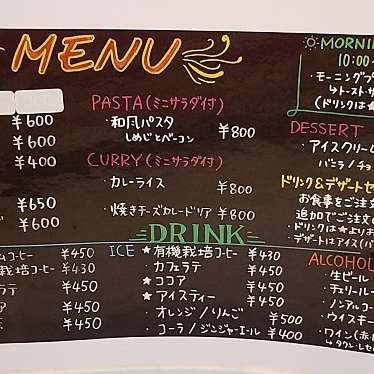 MENU
¥600
¥600
¥400
¥650
¥600
PASTA(ミニサラダ付)
・和風パスタ
しめじとベーコン ¥800
CURRY(ミニサラダ付)
・カレーライス ¥800
・焼きチーズカレードリア ¥800
DRINK
¥450
栽培コーヒー ¥430
ラテ ¥450
ア ¥450
¥450
ICE
★有機栽培コーヒー ¥430
・カフェラテ ¥450
★ココア ¥450
★アイスティー ¥450
・オレンジ/りんご ¥500
・コーラ/ジンジャーエール ¥400
MORNIN
10:00~
・モーニングプ
↳トーストサ
(ドリンクは★
DESSERT
・アイスクリーム
バニラ/チョ
ドリンク&デザートセ
お食事をご注文
追加でご注文の
・ドリンクは★よりお
・デザートはアイス(バ
ALCOHOL
・生ビール
・チェリール
・ノンアルコ
・ウイスキー
・ワイン(赤